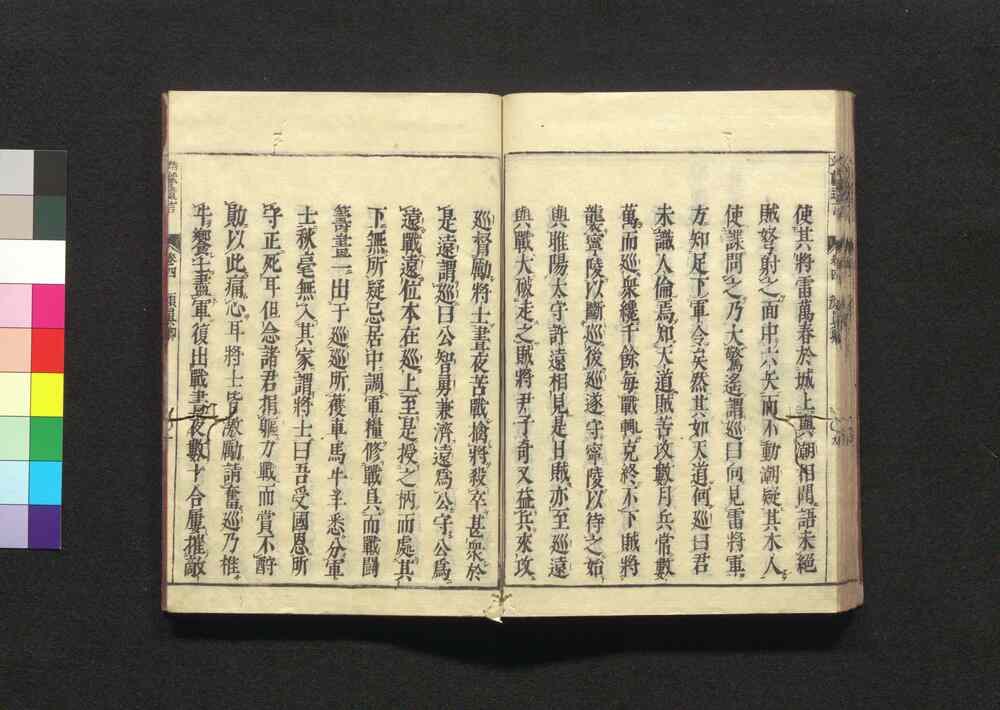 使其將雷萬春於城上與潮相聞語未絕
賊弩射之面中六矢而不動潮疑其木人
使諜問之乃大驚遙謂巡曰向見雷將軍
方知足下軍令矣然其如天道何巡曰君
未識人倫焉知天道賊苦攻數月兵常數
萬而巡衆纔千餘每戰輒克終不下賊將
襲寧陵以斷巡後巡遂守寧陵以待之始
與睢陽太守許遠相見是日賊亦至巡遠
與戰大破走之賊將尹子奇又益兵來攻
巡督勵將士晝夜苦戰擒將殺卒甚衆於
是遠謂巡曰公智勇兼濟遠爲公守公爲
遠戰遠位本在巡上至是授之柄而處其
下無所疑忌居中調軍糧修戰具而戰鬪
籌畫一出于巡巡所獲車馬牛羊悉分軍
士秋毫無入其家謂將士曰吾受國恩所
守正死耳但念諸君捐軀力戰而賞不酧
勛以此痛心耳將士皆激勵請奮巡乃椎
牛饗士盡軍復出戰晝夜數十合屢摧敵
卷四